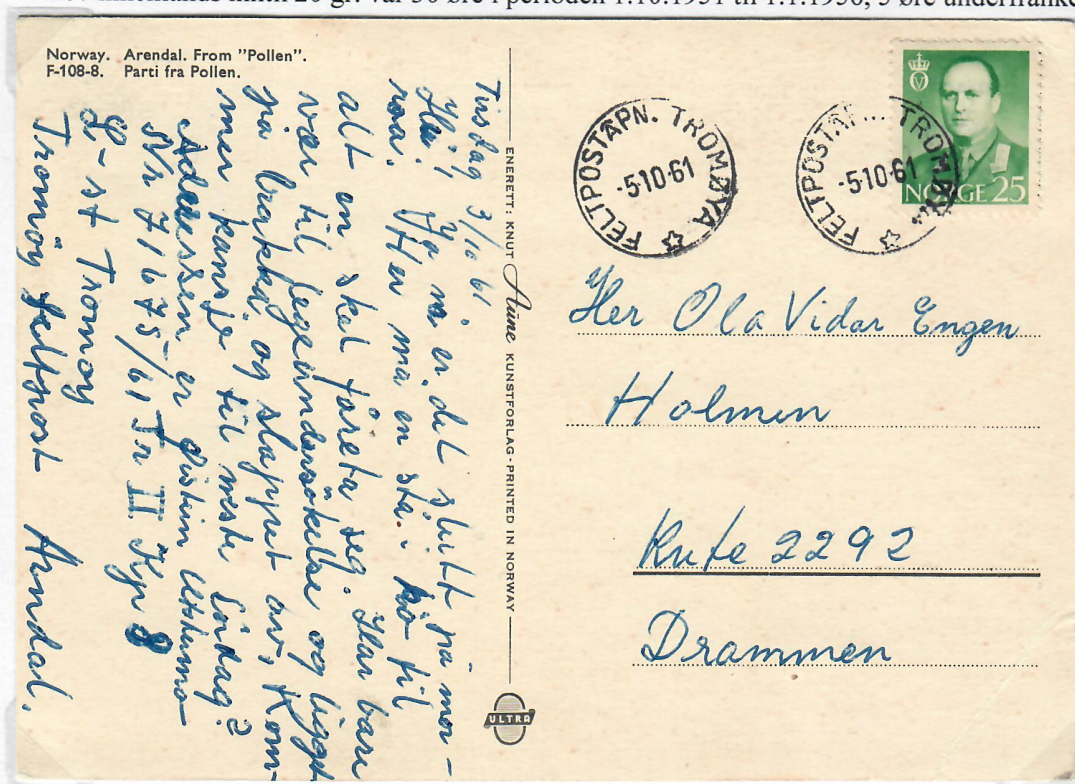 innenlands inntil 20 gr. var 30 øre i perioden 1.10.1951 til 1.1.1956, 5 øre underfranke
Norway. Arendal. From "Pollen".
F-108-8. Parti fra Pollen.
Tirsdag 3/10 61.
Hei! Ja nå er det slutt på mor-
roa. Her må en stå i kø til
alt en skal føreta seg. Har bare
vær til legeundersøkelse og ligget
på brakka og slappet av, Kom-
mer kansje til neste Lørdag?
Adressen er
Nr 71675/61 Tr II Kp 8
L-st Tromøy
Tromöy Feltpost Arndal.
ENERETT: KNUT Aune KUNSTFORLAG · PRINTED IN NORWAY
ULTRA
FELTPOSTÅPN. TROMØYA
-5.10.61
FELTPOSTÅP... TROMØYA
-5.10.61
NORGE 25
Her Ola Vidar Engen
Holmen
Rute 2292
Drammen